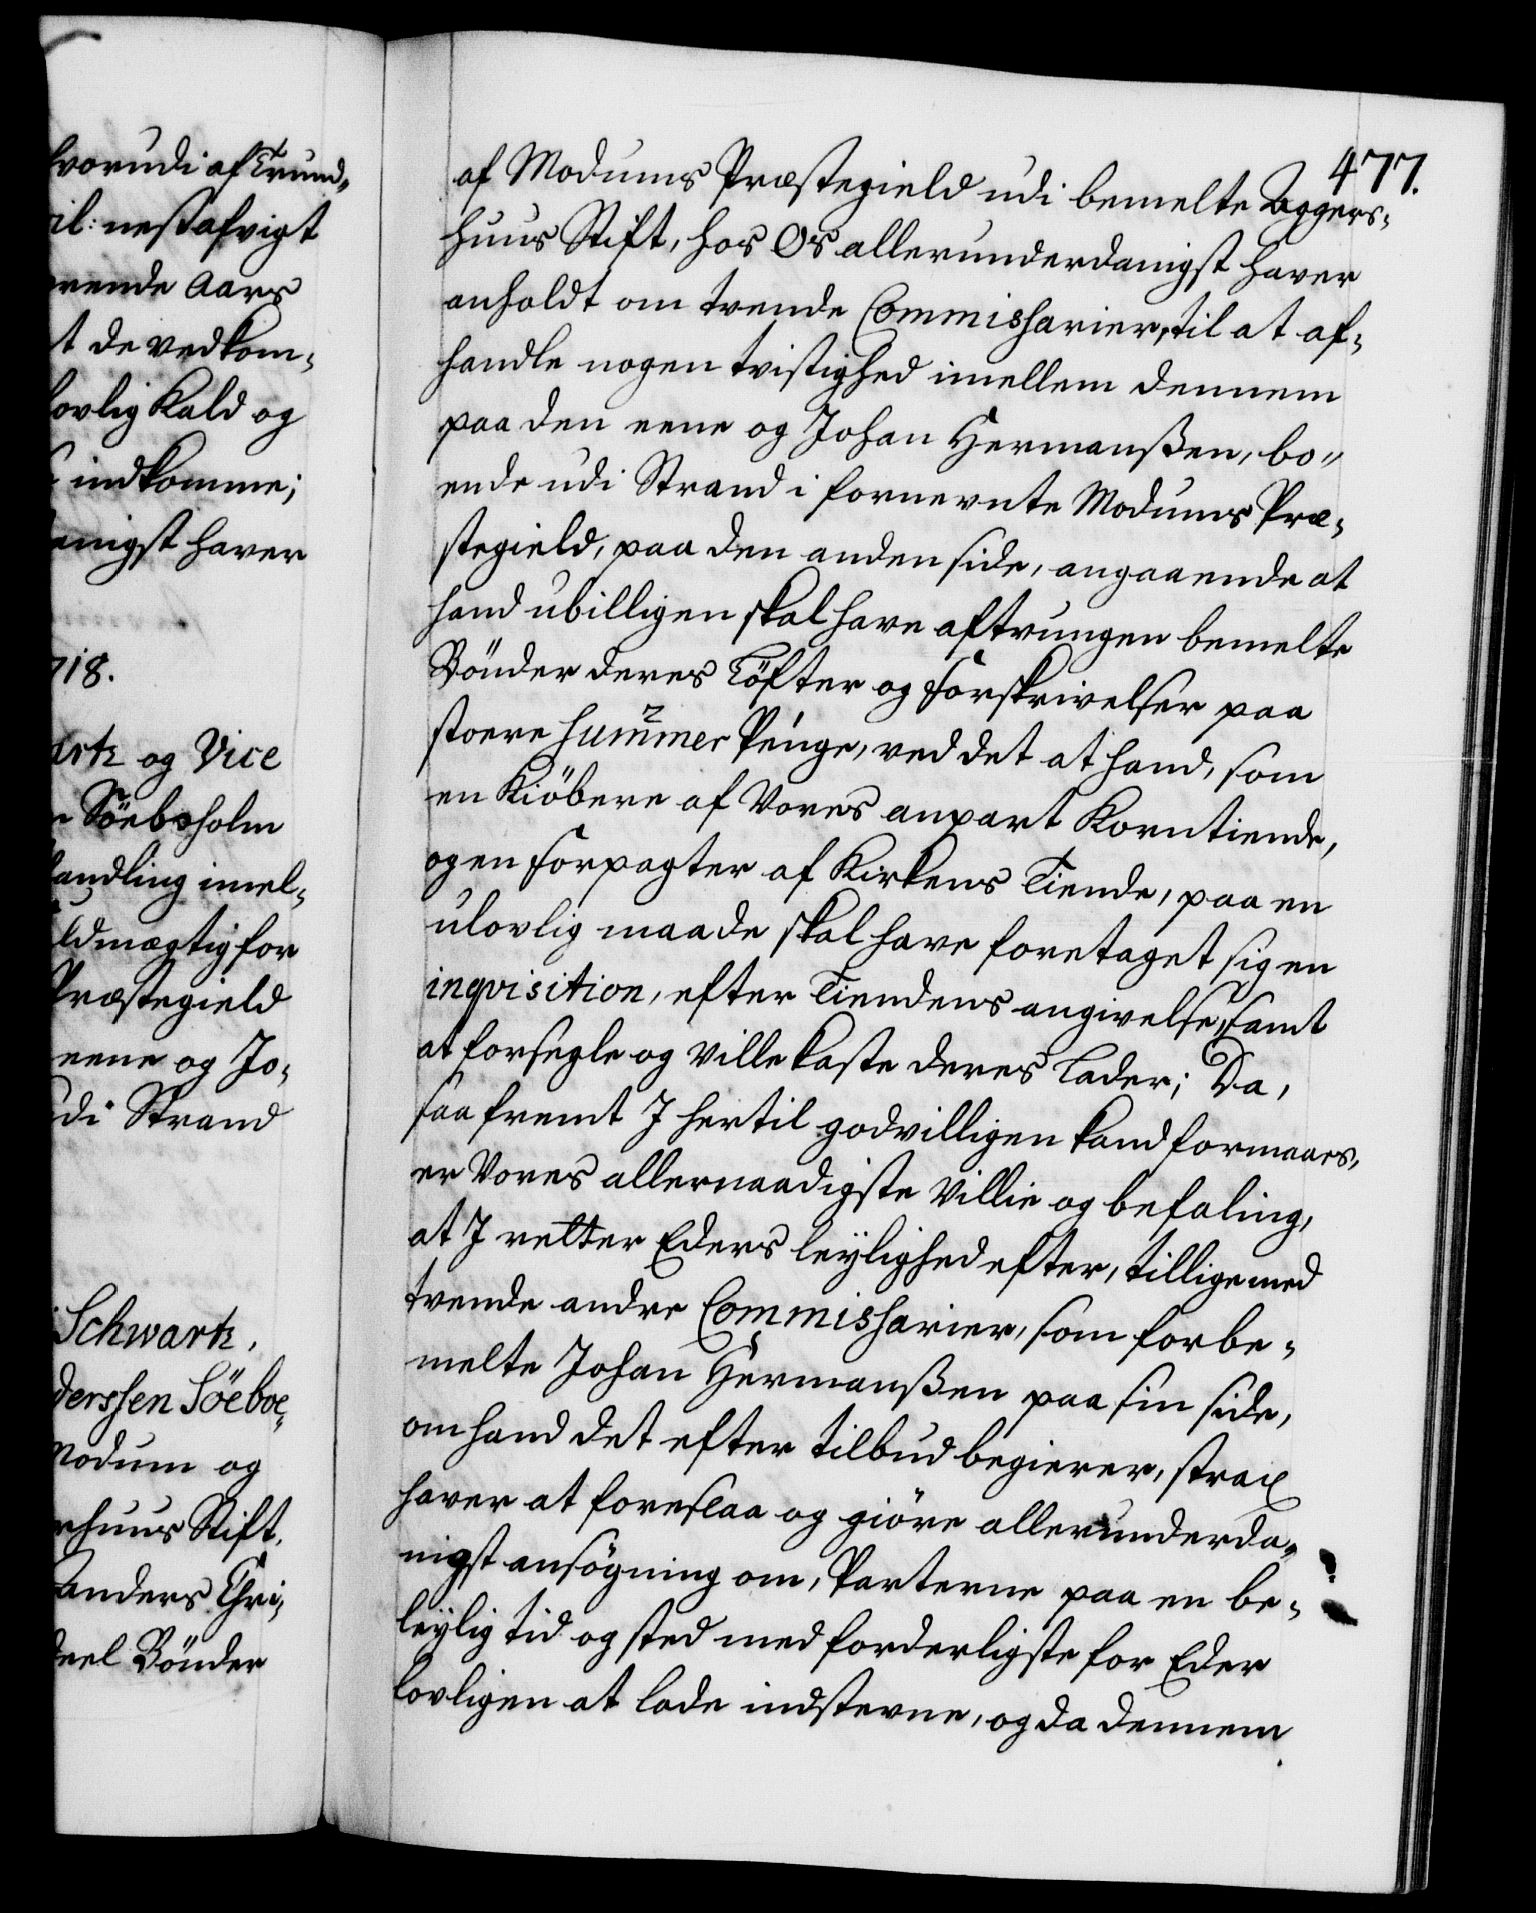 vorudi af Trund-
il: nest afvigt
rende Aars
t de vedkom-
ovlig Kald og
indkomme;
anigst haver
718.
artz og Vice
Söebsholm
andling imel-
ldmægtig for
Præstegield
eene og Jo-
di Strand
Schwartz,
derssen Söeboe-
Modum og
rhuus Stift,
Anders Chri-
deel Bönder
477.
af Modums Præstegield udi bemelte Aggers-
huus Stift, hos Os allerunderdanigst haver
anholdt om tvende Commissarier, til at af-
handle nogen tvistighed imellem dennem
paa den eene og Johan Hermanßen, bo-
ende udi Strand i fornevnte Modums Præ-
stegield, paa den anden side, angaaende at
hand ubilligen skal have aftrungen bemelte
Bönder deres Löfter og Forskrivelser paa
stoere Summer Penge, ved det at hand, som
en Kiöbere af Vores anpart Korntiende,
og en Forpagter af Kirkens Tiende, paa en
ulovlig maade skal have foretaget sig en
inqvisition, efter Tiendens angivelse, samt
at forsegle og ville kaste deres Lader; Da,
saa fremt I hertil godvilligen kand formaaes,
er Vores allernaadigste Villie og befaling,
at I retter Eders leylighed efter, tillige med
tvende andre Commissarier, som forbe-
melte Johan Hermanßen paa sin side,
om hand det efter tilbud begierer, strax
haver at foreslaa og giöre allerunderda-
nigst ansögning om, Parterne paa en be-
leylig tid og sted med forderligste for Eder
lovligen at lade indstevne, og da dennem